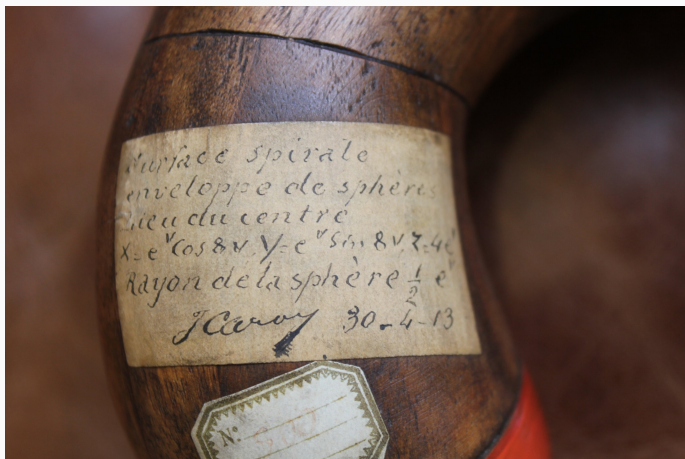 Surface spirale
enveloppe de sphères
Lieu du centre
X=e^v Cos 8v. Y=e^v Sin. 8v. Z=4e^v
Rayon de la sphère 1/2 e^v
J Caron 30-4-13
N: